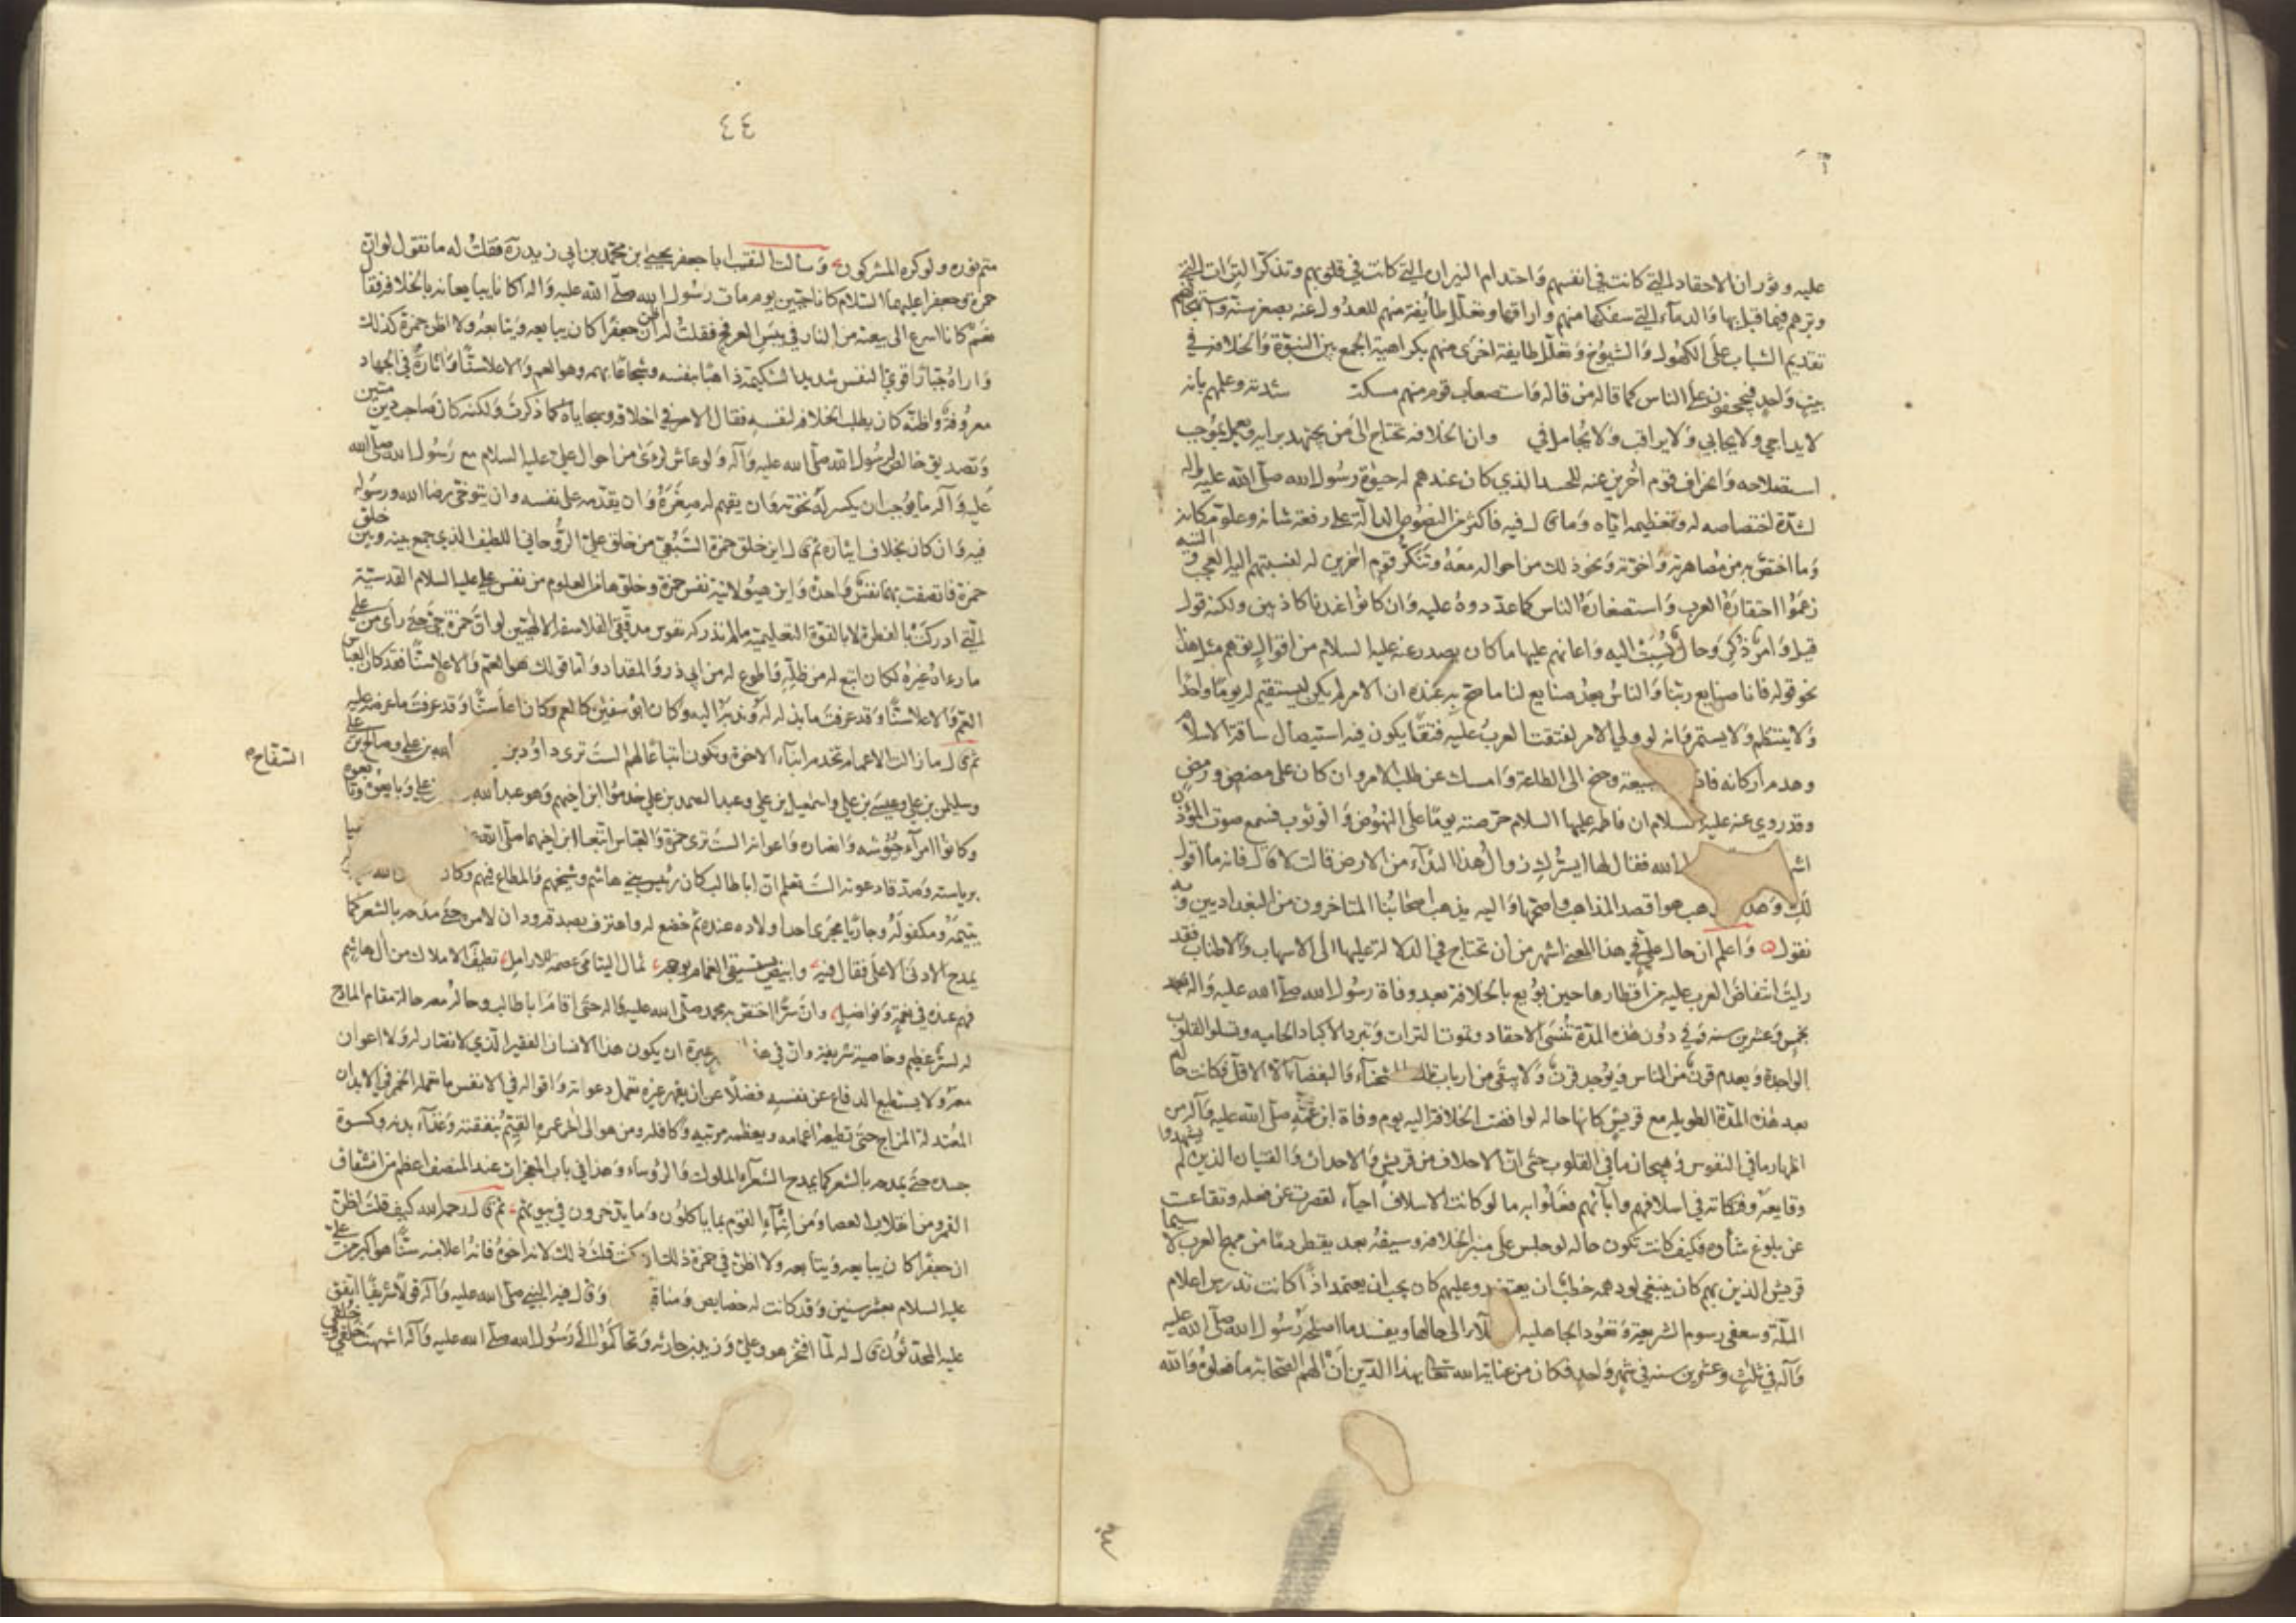 عليه وثوران الاحقاد التي كانت في انفسهم واحتدام النيران التي كانت في قلوبهم وتذكروا الترات التي
وترهم فيما قبل بها والدماء التي سفكها منهم واراقها وتعلل طايفة منهم للعدول عنه بصغر سنه واستهجانهم
تقديم الشباب على الكهول والشيوخ وتعلل طايفة اخرى منهم بكراهية الجمع بين النبوة والخلافه في
بيت واحد فيجحفون على الناس كما قاله من قاله واستصعاب قوم منهم مسكت شدته وعلمهم بانه
لا يداجي ولا يحابي ولا يراقب ولا يجامل في وان الخلافه تحتاج الى من يجتهد برايه ويعمل بموجب
استصلاحه وانحراف قوم آخرين عنه للحسد الذي كان عندهم له حيوة رسول الله صلى الله عليه وآله
لشدة اختصاصه له وتعظيمه اياه وما قال فيه فاكثر من النصوص الدالة على رفعة شانه وعلو مكانه
وما اختص به من مصاهرته واخوته ونحو ذلك من احواله معه وتنكر قوم آخرين له لنسبتهم اليه العجب والتيه
زعموا احتقاره العرب واستصغاره الناس كما عددوه عليه وان كانوا عندنا كاذبين ولكنه قول
قيل وامر ذكر وحال نسبت اليه واعانهم عليها ما كان يصدر عنه عليه السلام من اقوال توهم مثل هذا
نحو قوله فانا صنايع ربنا والناس بعد صنايع لنا ما صح به عنده ان الامر لم يكن ليستقيم له يوما واحدا
ولا ينتظم ولا يستمر وانه لو ولي الامر لفتقت العرب عليه فتقا يكون فيه استيصال ساقة الاسلام
وهدم اركانه فاذ بيعة وجنح الى الطاعة وامسك عن طلب الامر وان كان على مضض ورمض
وقد روي عنه عليه السلام ان فاطمه عليها السلام حرضته يوما على النهوض والوثوب فسمع صوت المؤذن
اشـ الله فقال لها ايسرك زوال هذا النداء من الارض قالت لا قال فانه ما اقول
لك وهذ هب هو اقصد المذاهب واصحها واليه يذهب اصحابنا المتاخرون من البغداديين وبه
نقول واعلم ان حال علي في هذا المعنى اشهر من ان تحتاج في الدلالة عليها الى الاسهاب والاطناب فقد
رايت انتقاض العرب عليه من اقطارها حين بويع بالخلافة بعد وفاة رسول الله صلى الله عليه وآله
بخمس وعشرين سنه وفي دون هذه المدة تنسى الاحقاد وتموت الترات وتبرد الاكباد الحاميه وتسلو القلوب
الواجدة ويعدم قرن من الناس ويوجد قرن ولا يبقى من ارباب تلك الشحناء والبغضاء الا الاقل فكانت حاله
بعد هذه المدة الطويله مع قريش كانها حاله لو افضت الخلافة اليه يوم وفاة ابن عمه صلى الله عليه وآله من
اظهار ما في النفوس وهيجان ما في القلوب حتى ان الاخلاف من قريش والاحداث والفتيان الذين لم يشهدوا
وقايعه وفتكاته في اسلافهم وآبائهم فعلوا به ما لو كانت الاسلاف احياء لقصرت عن فعله وتقاعست
عن بلوغ شاوه فكيف كانت تكون حاله لو جلس على منبر الخلافه وسيفه بعد يقطر دما من مهج العرب لا سيما
قريش الذين بهم كان ينبغي لو دهمه خطب ان يعتضد وعليهم كان يجب ان يعتمد اذا كانت تدرس اعلام
الملة وتتعفى رسوم الشريعة وتعود الجاهليه الى حالها ويفسد ما اصلحه رسول الله صلى الله عليه
وآله في ثلث وعشرين سنه في شهر واحد فكان من عناية الله تعالى بهذا الدين ان الهم الصحابة ما فعلوه والله
٤٤
متم نوره ولو كره المشركون وسالت النقيب ابا جعفر يحيى بن محمد بن ابي زيد ره فقلت له ما تقول لو ان
حمزة وجعفرا عليهما السلام كانا حيين يوم مات رسول الله صلى الله عليه وآله اكانا يبايعانه بالخلافة فقال
نعم كانا اسرع الى بيعته من النار في يبس العرفج فقلت له اظن ان جعفرا كان يبايعه ويتابعه ولا اظن حمزة كذلك
واراه جبارا قوي النفس شديد الشكيمة ذاهبا بنفسه وشجاعا بهمه وهو العم والاعلى سنا وآثاره في الجهاد
معروفة واظنه كان يطلب الخلافه لنفسه فقال الامر في اخلاقه وسجاياه كما ذكرت ولكنه كان صاحب دين متين
وتصديق خالص لرسول الله صلى الله عليه وآله ولو عاش لرأى من احوال علي عليه السلام مع رسول الله صلى الله
عليه وآله ما يوجب ان يكسر له نخوته وان يقيم له صعره وان يقدمه على نفسه وان يتوخى رضا الله ورسوله
فيه وان كان بخلاف ايثاره ثم قال اين خلق حمزة السبعي من خلق علي الروحاني اللطيف الذي جمع بينه وبين خلق
حمزة فاتصفت بهما نفس واحدة واين هيولانية نفس حمزة وخلوها من العلوم من نفس علي عليه السلام القدسية
التي ادركت بالفطرة لا بالقوة التعليمية ما لم تدركه نفوس مدققي الفلاسفة الالهيين لو ان حمزة حيي حتى راى من علي
ما رءاه غيره لكان اتبع له من ظله واطوع له من ابي ذر والمقداد واما قولك هو العم والاعلى سنا فقد كان العباس
العم والاعلى سنا وقد عرفت ما بذله له وندبه اليه وكان ابو سفين كالعم وكان اعلى سنا وقد عرفت ما عرضه عليه
ثم قال ما زالت الاعمام تخدم ابناء الاخوة وتكون اتباعا لهم الست ترى داود بن الله بن علي وصالح بن علي
وسليمن بن علي وعيسى بن علي واسمعيل بن علي وعبد الصمد بن علي خدموا ابن اخيهم وهو عبد الله علي وبايعوه وتابعوه
السفاح
وكانوا امراء جيوشه وانصاره واعوانه الست ترى حمزة والعباس اتبعا ابن اخيهما صلى الله
برياسته وصدقا دعوته الست تعلم ان ابا طالب كان رئيس بني هاشم وشيخهم والمطاع فيهم وكان
يتيمه ومكفوله وجاريا مجرى احد اولاده عنده ثم خضع له واعترف بصدقه ودان لامره حتى مدحه بالشعر كما
يمدح الادنى الاعلى فقال فيه وابيض يستسقى الغمام بوجهه ثمال اليتامى عصمة للارامل تطيف الاملاك من آل هاشم
فهم عنده في نعمة وفواضل وان سرا اختص به محمد صلى الله عليه وآله حتى اقام ابا طالب وحاله معه حاله مقام المادح
له لسر عظيم وخاصية شريفة وان في هذا عبرة ان يكون هذا الانسان الفقير الذي لا انصار له ولا اعوان
معه ولا يستطيع الدفاع عن نفسه فضلا عن ان يقهر غيره تعمل دعوته واقواله في الانفس ما تعمله الخمر في الابدان
المعتدلة المزاج حتى تطيعه اعمامه ويعظمه مربيه وكافله ومن هو الى آخر عمره القيم بنفقته وغذاء بدنه وكسوة
جسده حتى يمدحه بالشعر كما يمدح الشعراء الملوك والرؤساء وهذا في باب المعجزات عند المنصف اعظم من انشقاق
القمر ومن انقلاب العصا ومن انباء القوم بما ياكلون وما يدخرون في بيوتهم ثم قال رحمه الله كيف قلت اظن
ان جعفرا كان يبايعه ويتابعه ولا اظن في حمزة ذلك ان كنت قلت ذلك لانه اخوه فانه اعلى منه سنا هو اكبر من علي
عليه السلام بعشر سنين وقد كانت له خصايص ومناقب وقال فيه النبي صلى الله عليه وآله قولا شريفا اتفق
عليه المحدثون قال له لما افتخر هو وعلي وزيد بن حارثه وتحاكموا الى رسول الله صلى الله عليه وآله اشبهت خلقي وخلقي